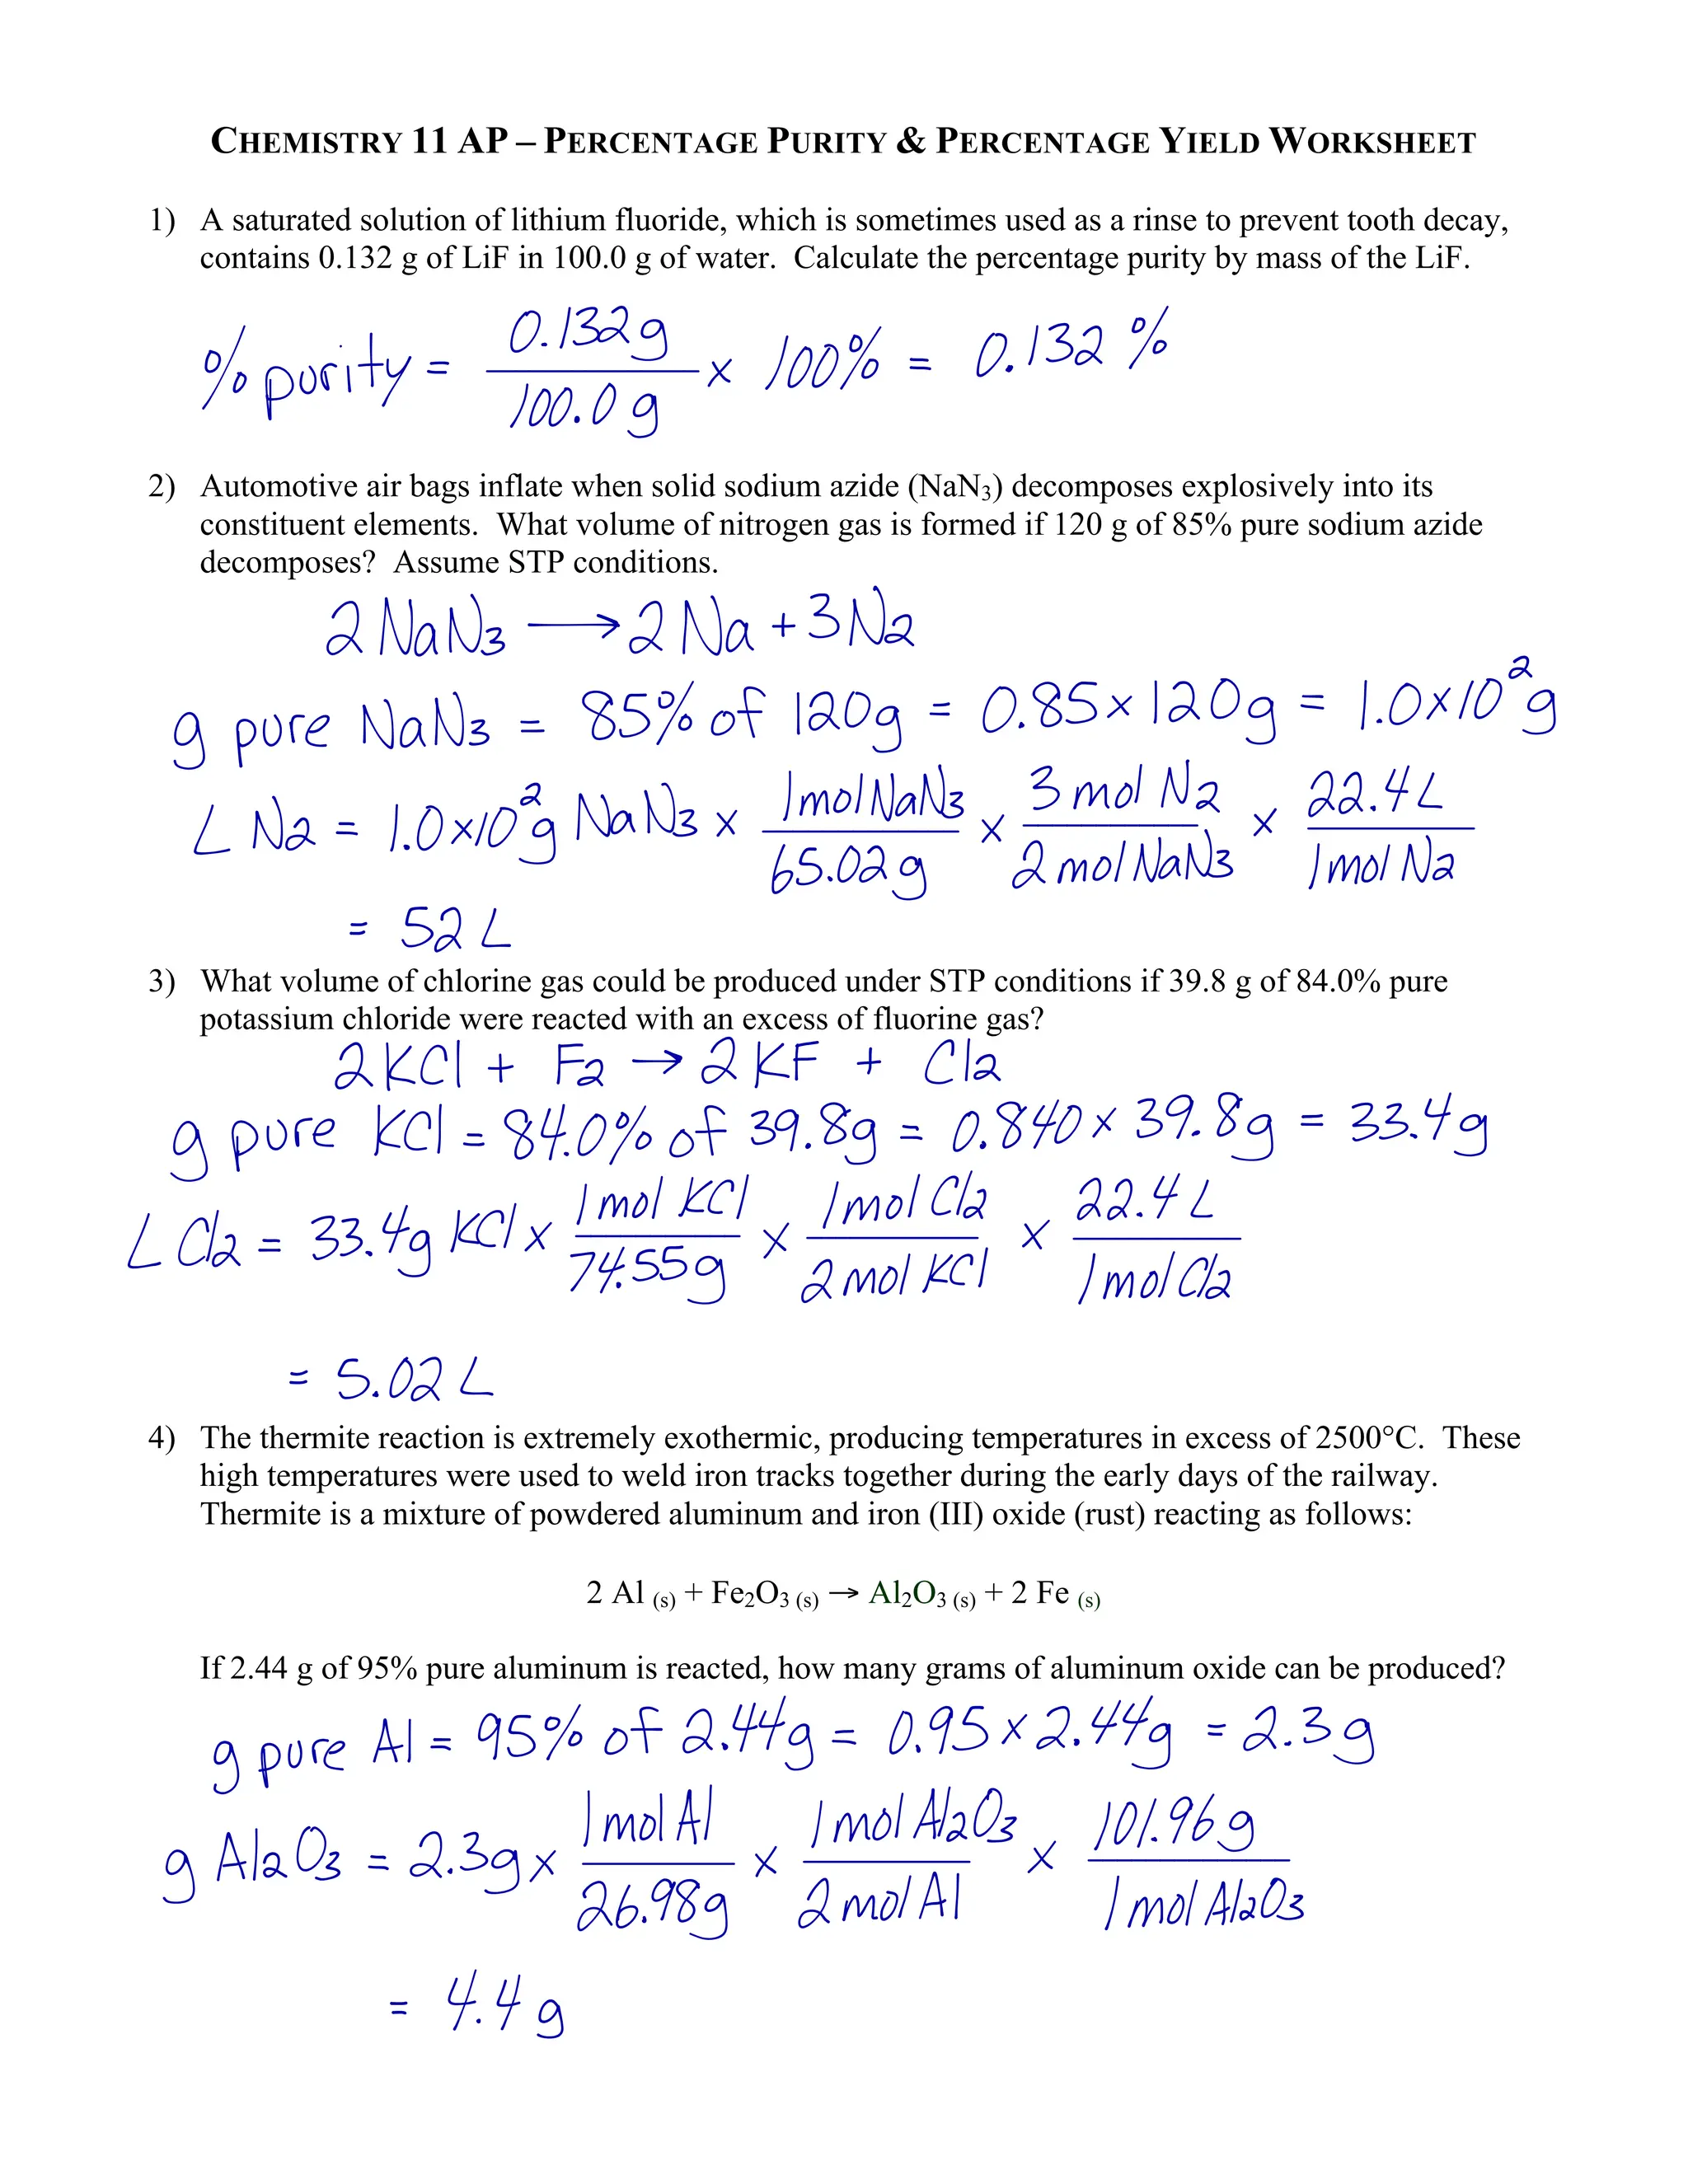 CHEMISTRY 11 AP – PERCENTAGE PURITY & PERCENTAGE YIELD WORKSHEET
1) A saturated solution of lithium fluoride, which is sometimes used as a rinse to prevent tooth decay,
contains 0.132 g of LiF in 100.0 g of water. Calculate the percentage purity by mass of the LiF.
% purity = 0.132g / 100.0g × 100% = 0.132 %
2) Automotive air bags inflate when solid sodium azide (NaN₃) decomposes explosively into its
constituent elements. What volume of nitrogen gas is formed if 120 g of 85% pure sodium azide
decomposes? Assume STP conditions.
2 NaN₃ → 2 Na + 3 N₂
g pure NaN₃ = 85% of 120g = 0.85 × 120g = 1.0×10² g
L N₂ = 1.0×10² g NaN₃ × 1 mol NaN₃ / 65.02g × 3 mol N₂ / 2 mol NaN₃ × 22.4 L / 1 mol N₂
= 52 L
3) What volume of chlorine gas could be produced under STP conditions if 39.8 g of 84.0% pure
potassium chloride were reacted with an excess of fluorine gas?
2 KCl + F₂ → 2 KF + Cl₂
g pure KCl = 84.0% of 39.8g = 0.840 × 39.8g = 33.4g
L Cl₂ = 33.4g KCl × 1 mol KCl / 74.55g × 1 mol Cl₂ / 2 mol KCl × 22.4 L / 1 mol Cl₂
= 5.02 L
4) The thermite reaction is extremely exothermic, producing temperatures in excess of 2500°C. These
high temperatures were used to weld iron tracks together during the early days of the railway.
Thermite is a mixture of powdered aluminum and iron (III) oxide (rust) reacting as follows:
2 Al (s) + Fe₂O₃ (s) → Al₂O₃ (s) + 2 Fe (s)
If 2.44 g of 95% pure aluminum is reacted, how many grams of aluminum oxide can be produced?
g pure Al = 95% of 2.44g = 0.95 × 2.44g = 2.3g
g Al₂O₃ = 2.3g × 1 mol Al / 26.98g × 1 mol Al₂O₃ / 2 mol Al × 101.96g / 1 mol Al₂O₃
= 4.4 g